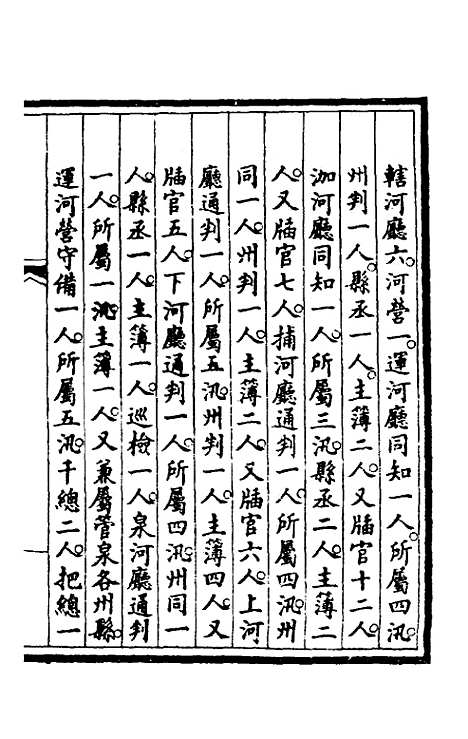 轄河廳六。河營一。運河廳同知一人。所屬四汛。
州判一人。縣丞一人。主簿二人。又牐官十二人。
泇河廳同知一人。所屬三汛。縣丞二人。主簿二
人。又牐官七人。捕河廳通判一人。所屬四汛。州
同一人。州判一人。主簿二人。又牐官六人。上河
廳通判一人。所屬五汛。州判一人。主簿四人。又
牐官五人。下河廳通判一人。所屬四汛。州同一
人。縣丞一人。主簿一人。巡檢一人。泉河廳通判
一人。所屬一汛。主簿一人。又兼屬管泉各州縣。
運河營守備一人。所屬五汛。千總二人。把總一